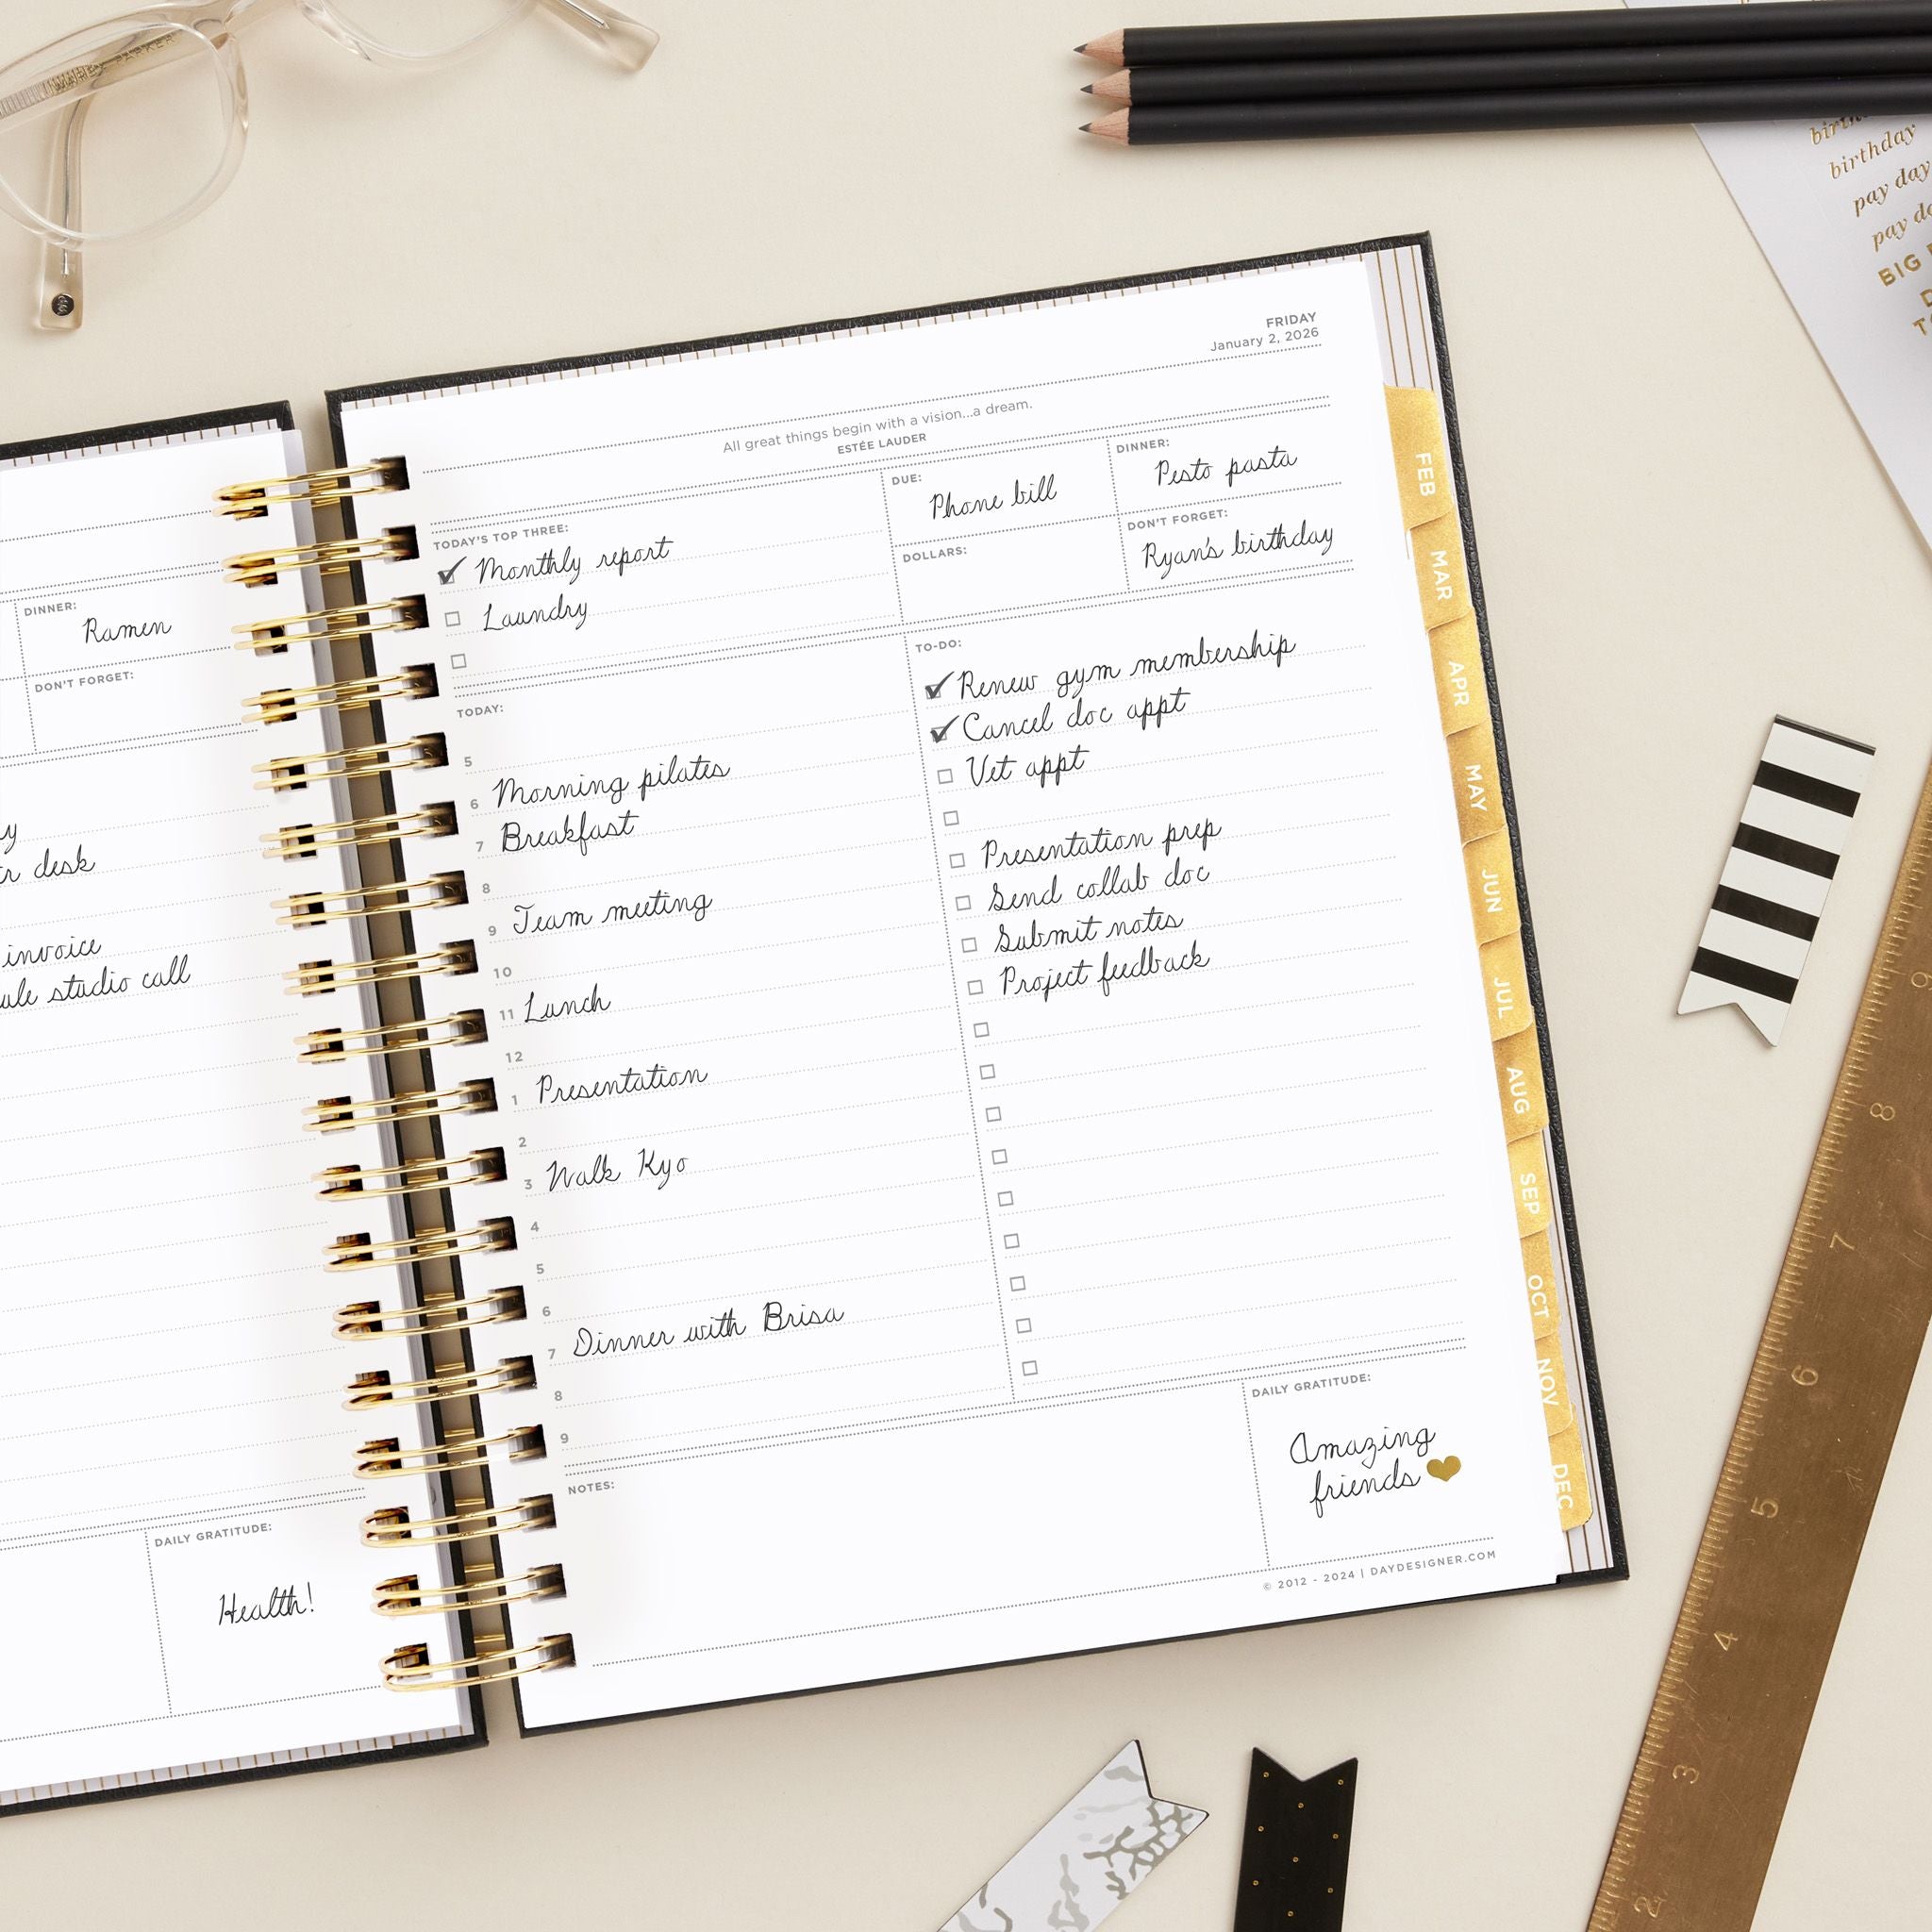 DINNER:
Ramen
DON'T FORGET:
desk
invoice
studio call
DAILY GRATITUDE:
Health!
FRIDAY
January 2, 2026
All great things begin with a vision...a dream.
ESTÉE LAUDER
TODAY'S TOP THREE:
Monthly report
Laundry
DUE:
Phone bill
DOLLARS:
DINNER:
Pesto pasta
DON'T FORGET:
Ryan's birthday
TODAY:
5
6 Morning pilates
7 Breakfast
8
9 Team meeting
10
11 Lunch
12
1 Presentation
2
3 Walk Kyo
4
5
6
7 Dinner with Brisa
8
9
TO-DO:
Renew gym membership
Cancel doc appt
Vet appt
Presentation prep
Send collab doc
Submit notes
Project feedback
NOTES:
DAILY GRATITUDE:
Amazing
friends
© 2012 - 2024 | DAYDESIGNER.COM
FEB
MAR
APR
MAY
JUN
JUL
AUG
SEP
OCT
NOV
DEC
birthday
pay day
pay
BIG
9
8
7
6
5
4
3
2